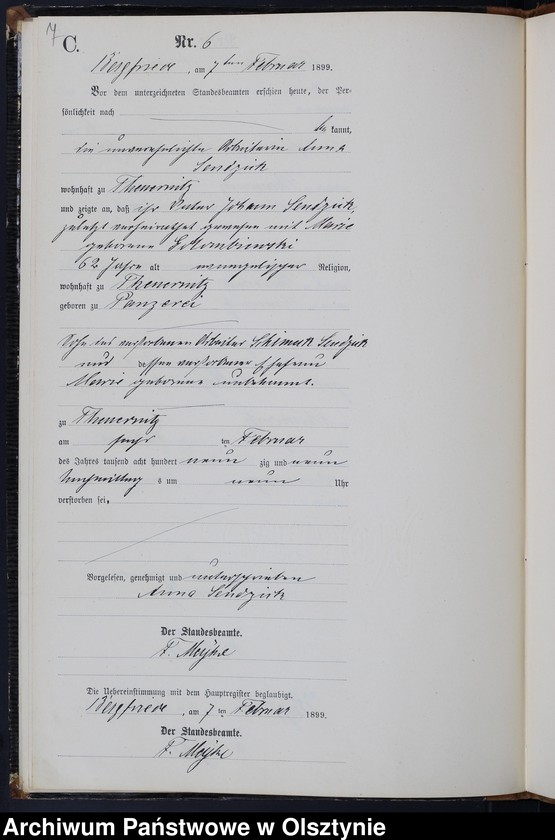 7
C.
Nr. 6
Bergfriede, am 7ten Februar 1899.
Vor dem unterzeichneten Standesbeamten erschien heute, der Per-
sönlichkeit nach
be kannt,
die unverehelichte Arbeiterin Anna
Sendzick
wohnhaft zu Theuernitz
und zeigte an, daß ihr Vater Johann Sendzick,
zuletzt verheirathet gewesen mit Marie
geborene
62 Jahre alt evangelischer Religion,
wohnhaft zu Theuernitz
geboren zu Panzerei
Sohn des verstorbenen Arbeiter Sendzick
und dessen verstorbener Ehefrau
Marie geborene unbekannt.
zu Theuernitz
am sechs ten Februar
des Jahres tausend acht hundert neun zig und neun
Nachmittag s um neun Uhr
verstorben sei.
Vorgelesen, genehmigt und unterschrieben
Anna Sendzick
Der Standesbeamte.
F.
Die Uebereinstimmung mit dem Hauptregister beglaubigt.
Bergfriede, am 7 ten Februar 1899.
Der Standesbeamte.
F.
Archiwum Państwowe w Olsztynie